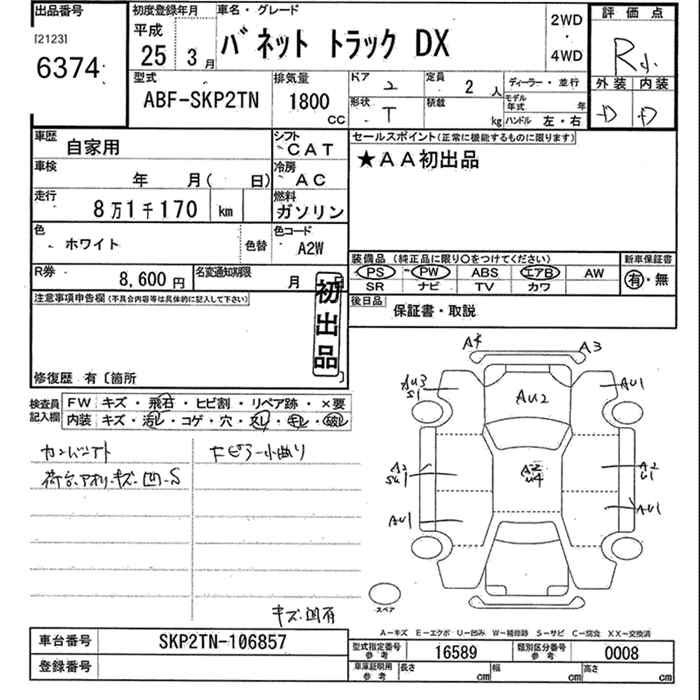 出品番号
[2123]
6374
初度登録年月
平成
25 3月
車名・グレード
バネット トラック DX
2WD
・
4WD
評価点
R小
外装 内装
D D
型式
ABF-SKP2TN
排気量
1800
CC
ドア 2
定員 2 人
ディーラー・並行
形状 T
積載 kg
モデル年式 年
ハンドル 左・右
車歴 自家用
シフト CAT
車検 年 月( 日)
冷房 AC
走行 8万1千170 km
燃料 ガソリン
色 ホワイト 色替
色コード A2W
R券 8,600円
名変通知期限 月 日
セールスポイント(正常に機能するものに限ります)
★AA初出品
装備品 (純正品に限り〇をつけてください)
PS PW ABS エアB AW
SR ナビ TV カワ
新車保証書
有・無
後日品 保証書・取説
注意事項申告欄(不具合内容等は具体的に記入して下さい)
初出品
修復歴 有〔箇所
検査員記入欄
FW キズ・飛石・ヒビ割・リペア跡・×要
内装 キズ・汚レ・コゲ・穴・スレ・キレ・破レ
荷台.アオリ.キズ.凹.S
Fピラー小曲り
キズ.凹有
A4 A3
AU3 S1
AU2
AU1
A2 SU1
A2 U4
A2 U1
AU1
AU1
スペア
A−キズ E−エクボ U−凹み W−補修跡 S−サビ C−腐食 XX−交換済
車台番号 SKP2TN-106857
登録番号
型式指定番号 参考 16589
類別区分番号 参考 0008
車庫証明用 参考 長さ cm 幅 cm 高さ cm